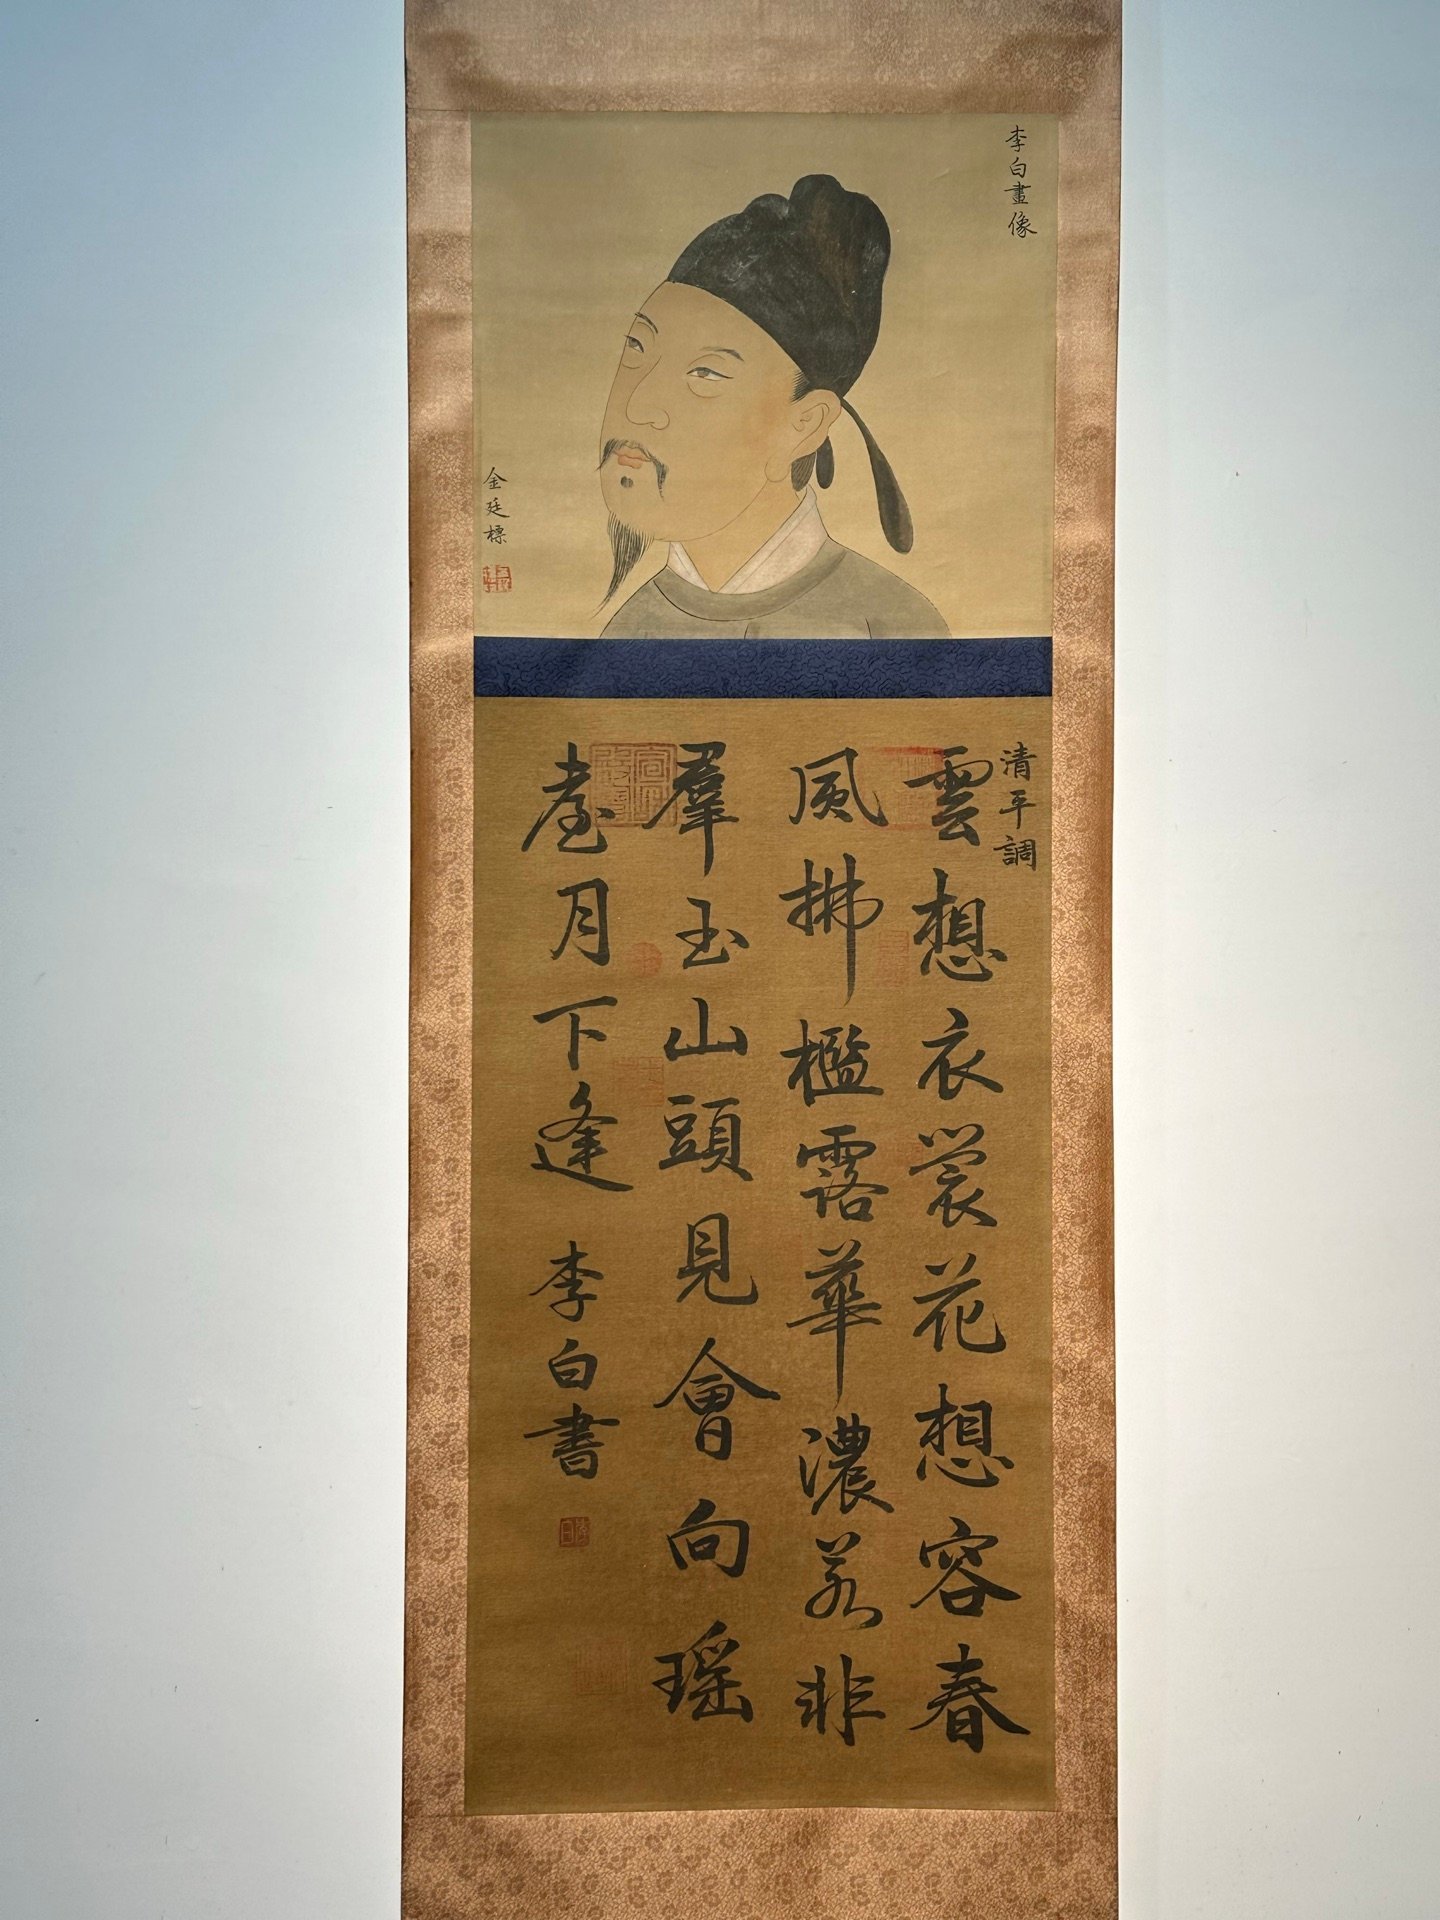 李白畫像
金廷標
清平調
雲想衣裳花想容春
風拂檻露華濃若非
羣玉山頭見會向瑶
臺月下逢 李白書